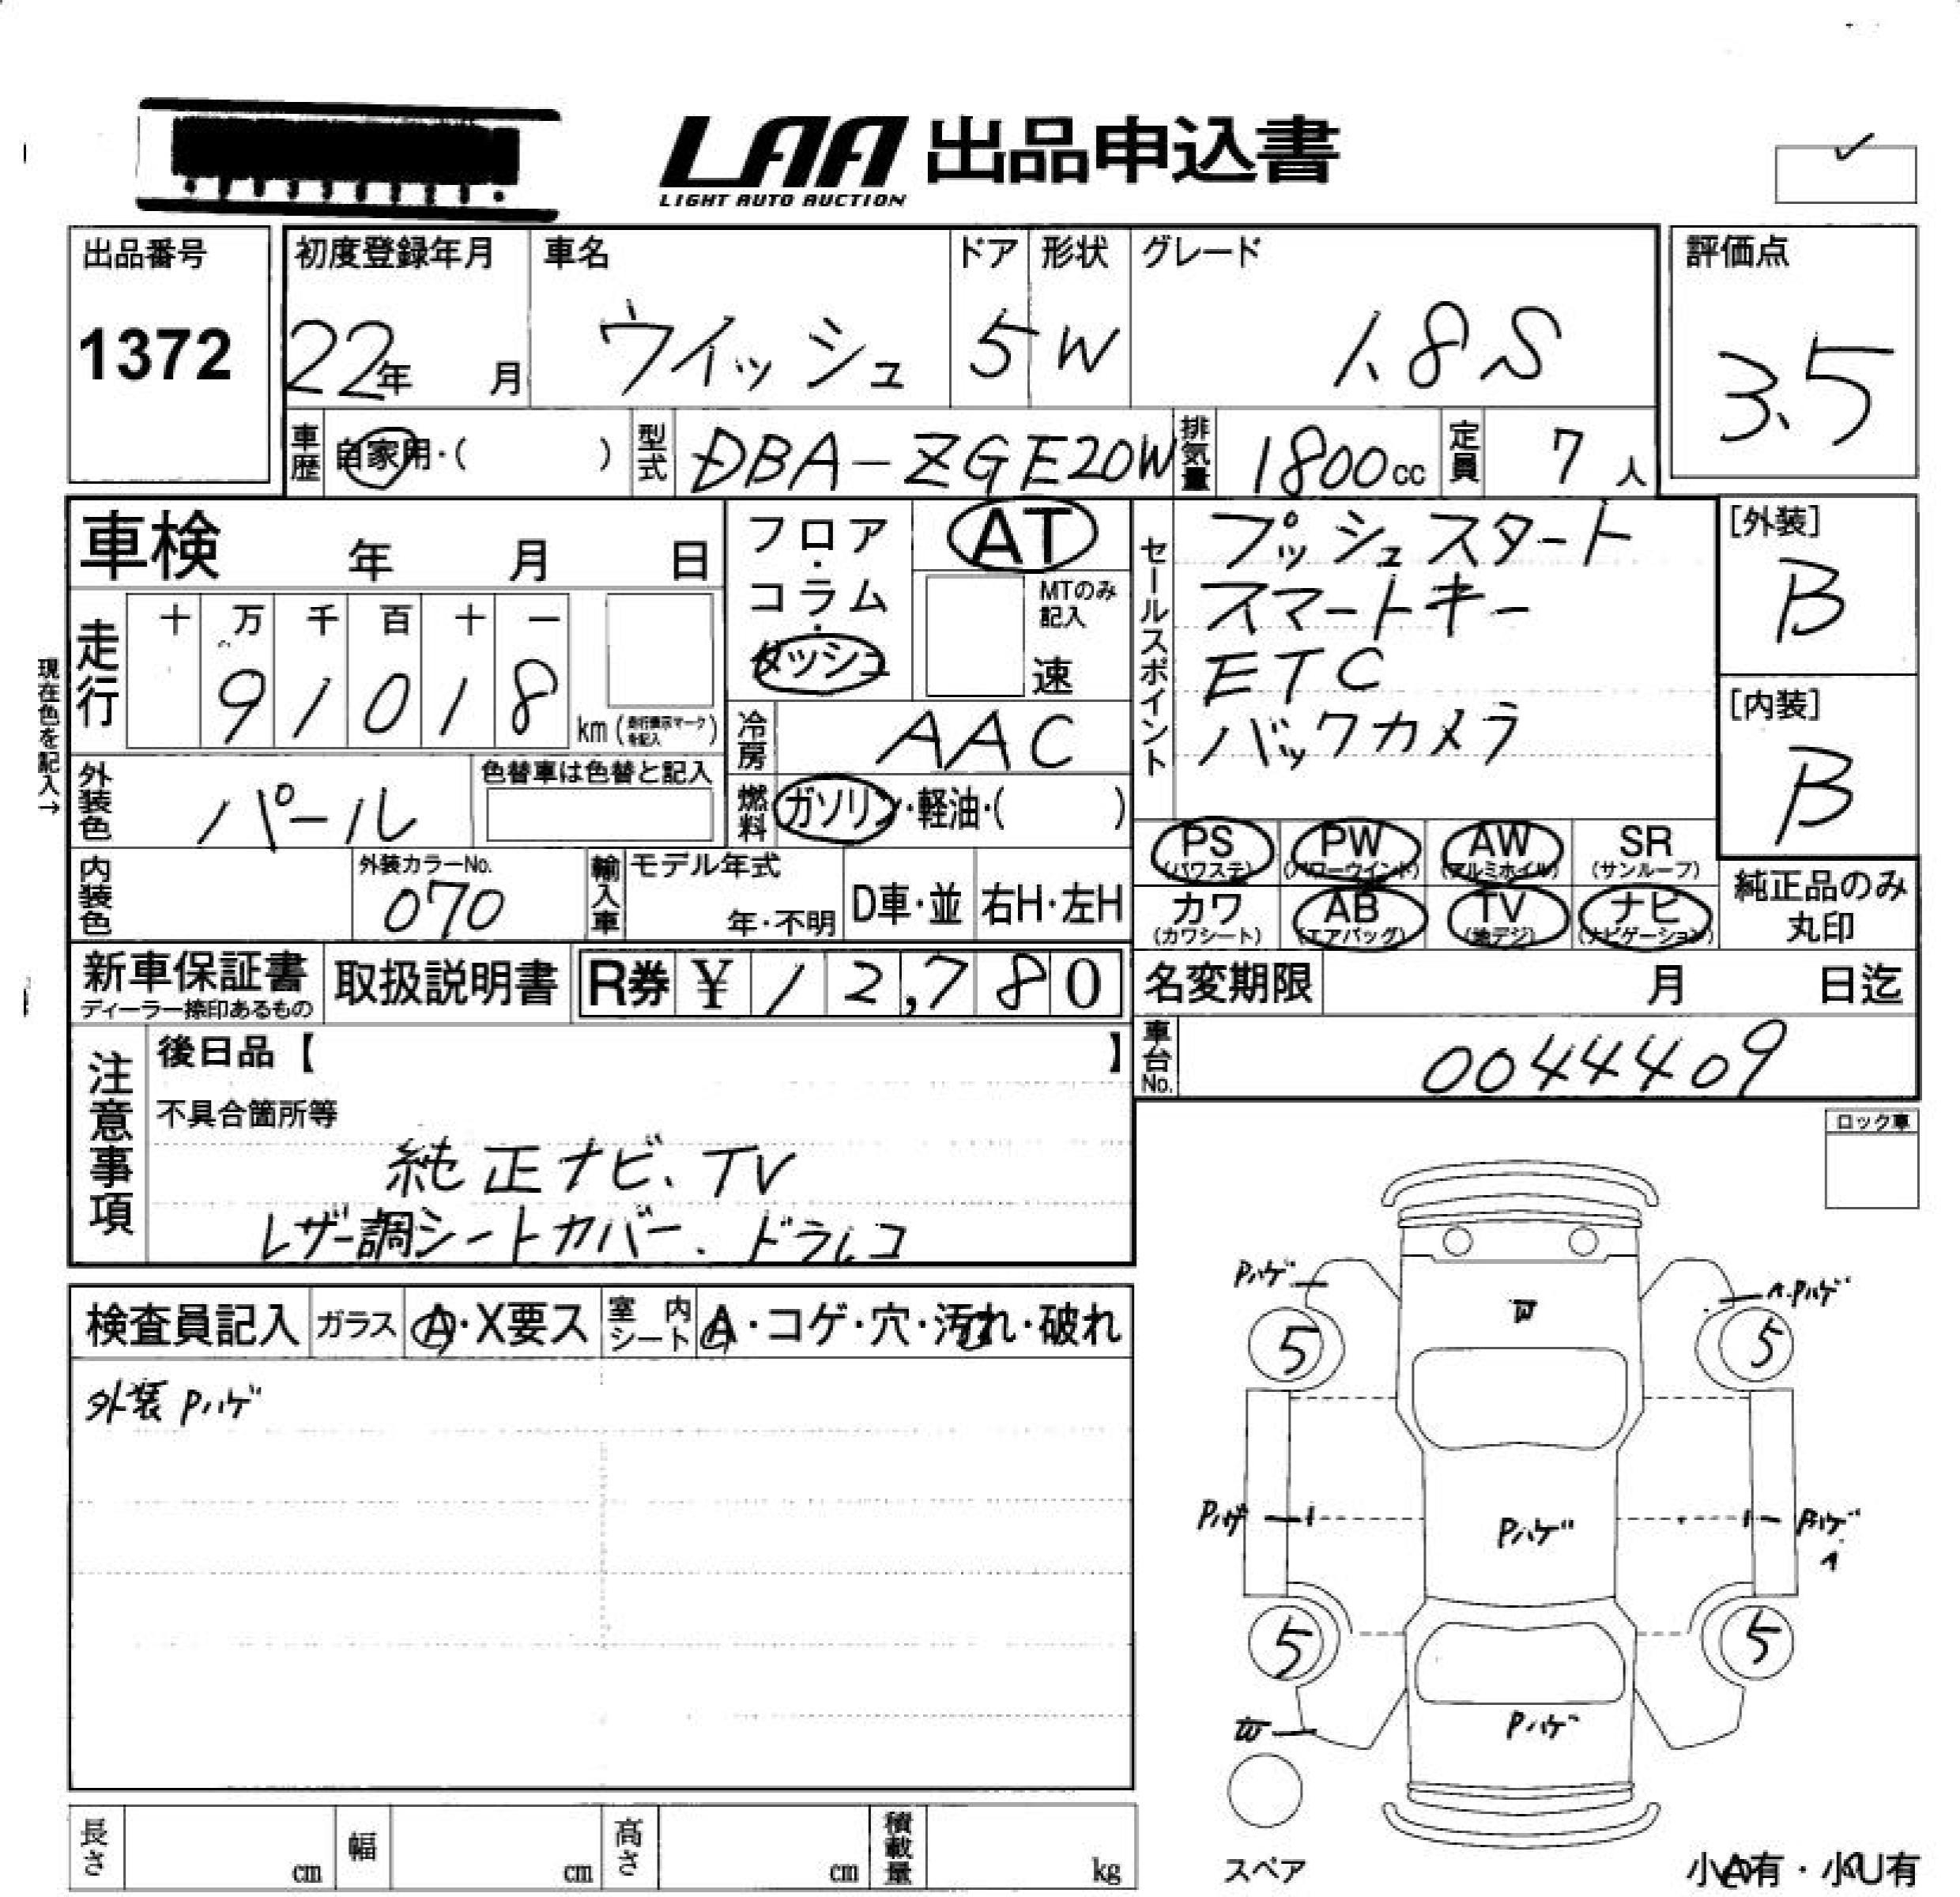 LAA 出品申込書
LIGHT AUTO AUCTION
出品番号
1372
初度登録年月
22年 月
車名
ウイッシュ
ドア
5
形状
W
グレード
1.8S
評価点
3.5
車歴
自家用・( )
型式
DBA-ZGE20W
排気量
1800cc
定員
7人
車検 年 月 日
フロア・コラム・ダッシュ
AT
MTのみ記入
速
セールスポイント
プッシュスタート
スマートキー
ETC
バックカメラ
[外装]
B
[内装]
B
現在色を記入→
走行
十 万 千 百 十 一
9 1 0 1 8
km (走行表示マークを記入)
冷房
AAC
外装色
パール
色替車は色替と記入
燃料
ガソリン・軽油・( )
PS (パワステ)
PW (パワーウインド)
AW (アルミホイル)
SR (サンルーフ)
カワ (カワシート)
AB (エアバッグ)
TV (地デジ)
ナビ (ナビゲーション)
純正品のみ丸印
内装色
外装カラーNo.
070
輸入車
モデル年式
年・不明
D車・並
右H・左H
新車保証書
ディーラー捺印あるもの
取扱説明書
R券 ¥ 12,780
名変期限 月 日迄
車台No.
0044409
注意事項
後日品【 】
不具合箇所等
純正ナビ、TV
レザー調シートカバー、ドラレコ
ロック車
検査員記入
ガラス
A・X要ス
室内シート
A・コゲ・穴・汚れ・破れ
外装Pハゲ
Pハゲ
W
Pハゲ
5
5
Pハゲ
Pハゲ
Pハゲ
5
5
W
Pハゲ
スペア
小A有・小U有
長さ cm
幅 cm
高さ cm
積載量 kg